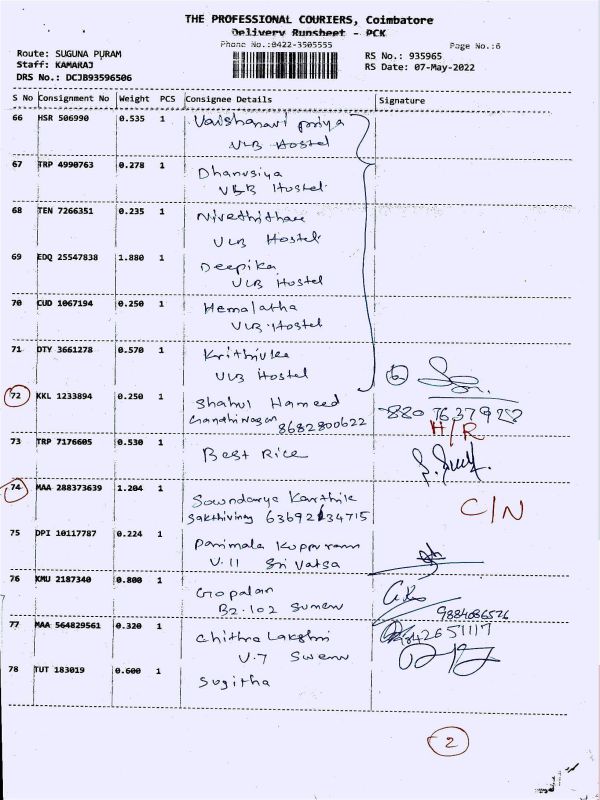 THE PROFESSIONAL COURIERS, Coimbatore
Delivery Runsheet - PCK
Phone No.:0422-3505555
Page No.:6
Route: SUGUNA PURAM
Staff: KAMARAJ
DRS No.: DCJB93596506
RS No.: 935965
RS Date: 07-May-2022
S No Consignment No Weight PCS Consignee Details Signature
66 HSR 506990 0.535 1 Vaishanavi priya
VLB Hostel
67 TRP 4990763 0.278 1 Dhanusiya
VLB Hostel
68 TEN 7266351 0.235 1
VLB Hostel
69 EDQ 25547838 1.880 1 Deepika
VLB Hostel
70 CUD 1067194 0.250 1 Hemalatha
VLB Hostel
71 DTY 3661278 0.570 1 Krithivka
VLB Hostel
72 KKL 1233894 0.250 1 Shahul Hameed
Gandhi Nagar 8682800622
H/R
73 TRP 7176605 0.530 1 Best Rice
74 MAA 288373639 1.204 1 Sowndarya Karthik
C/N
75 DPI 10117787 0.224 1 Parimala
V.11 Sri Vatsa
76 KMU 2187340 0.800 1 Gopalan
B2.102
9884086526
77 MAA 564829561 0.320 1 Chithra Lakshmi
V.7
78 TUT 183019 0.600 1 Sugitha
2